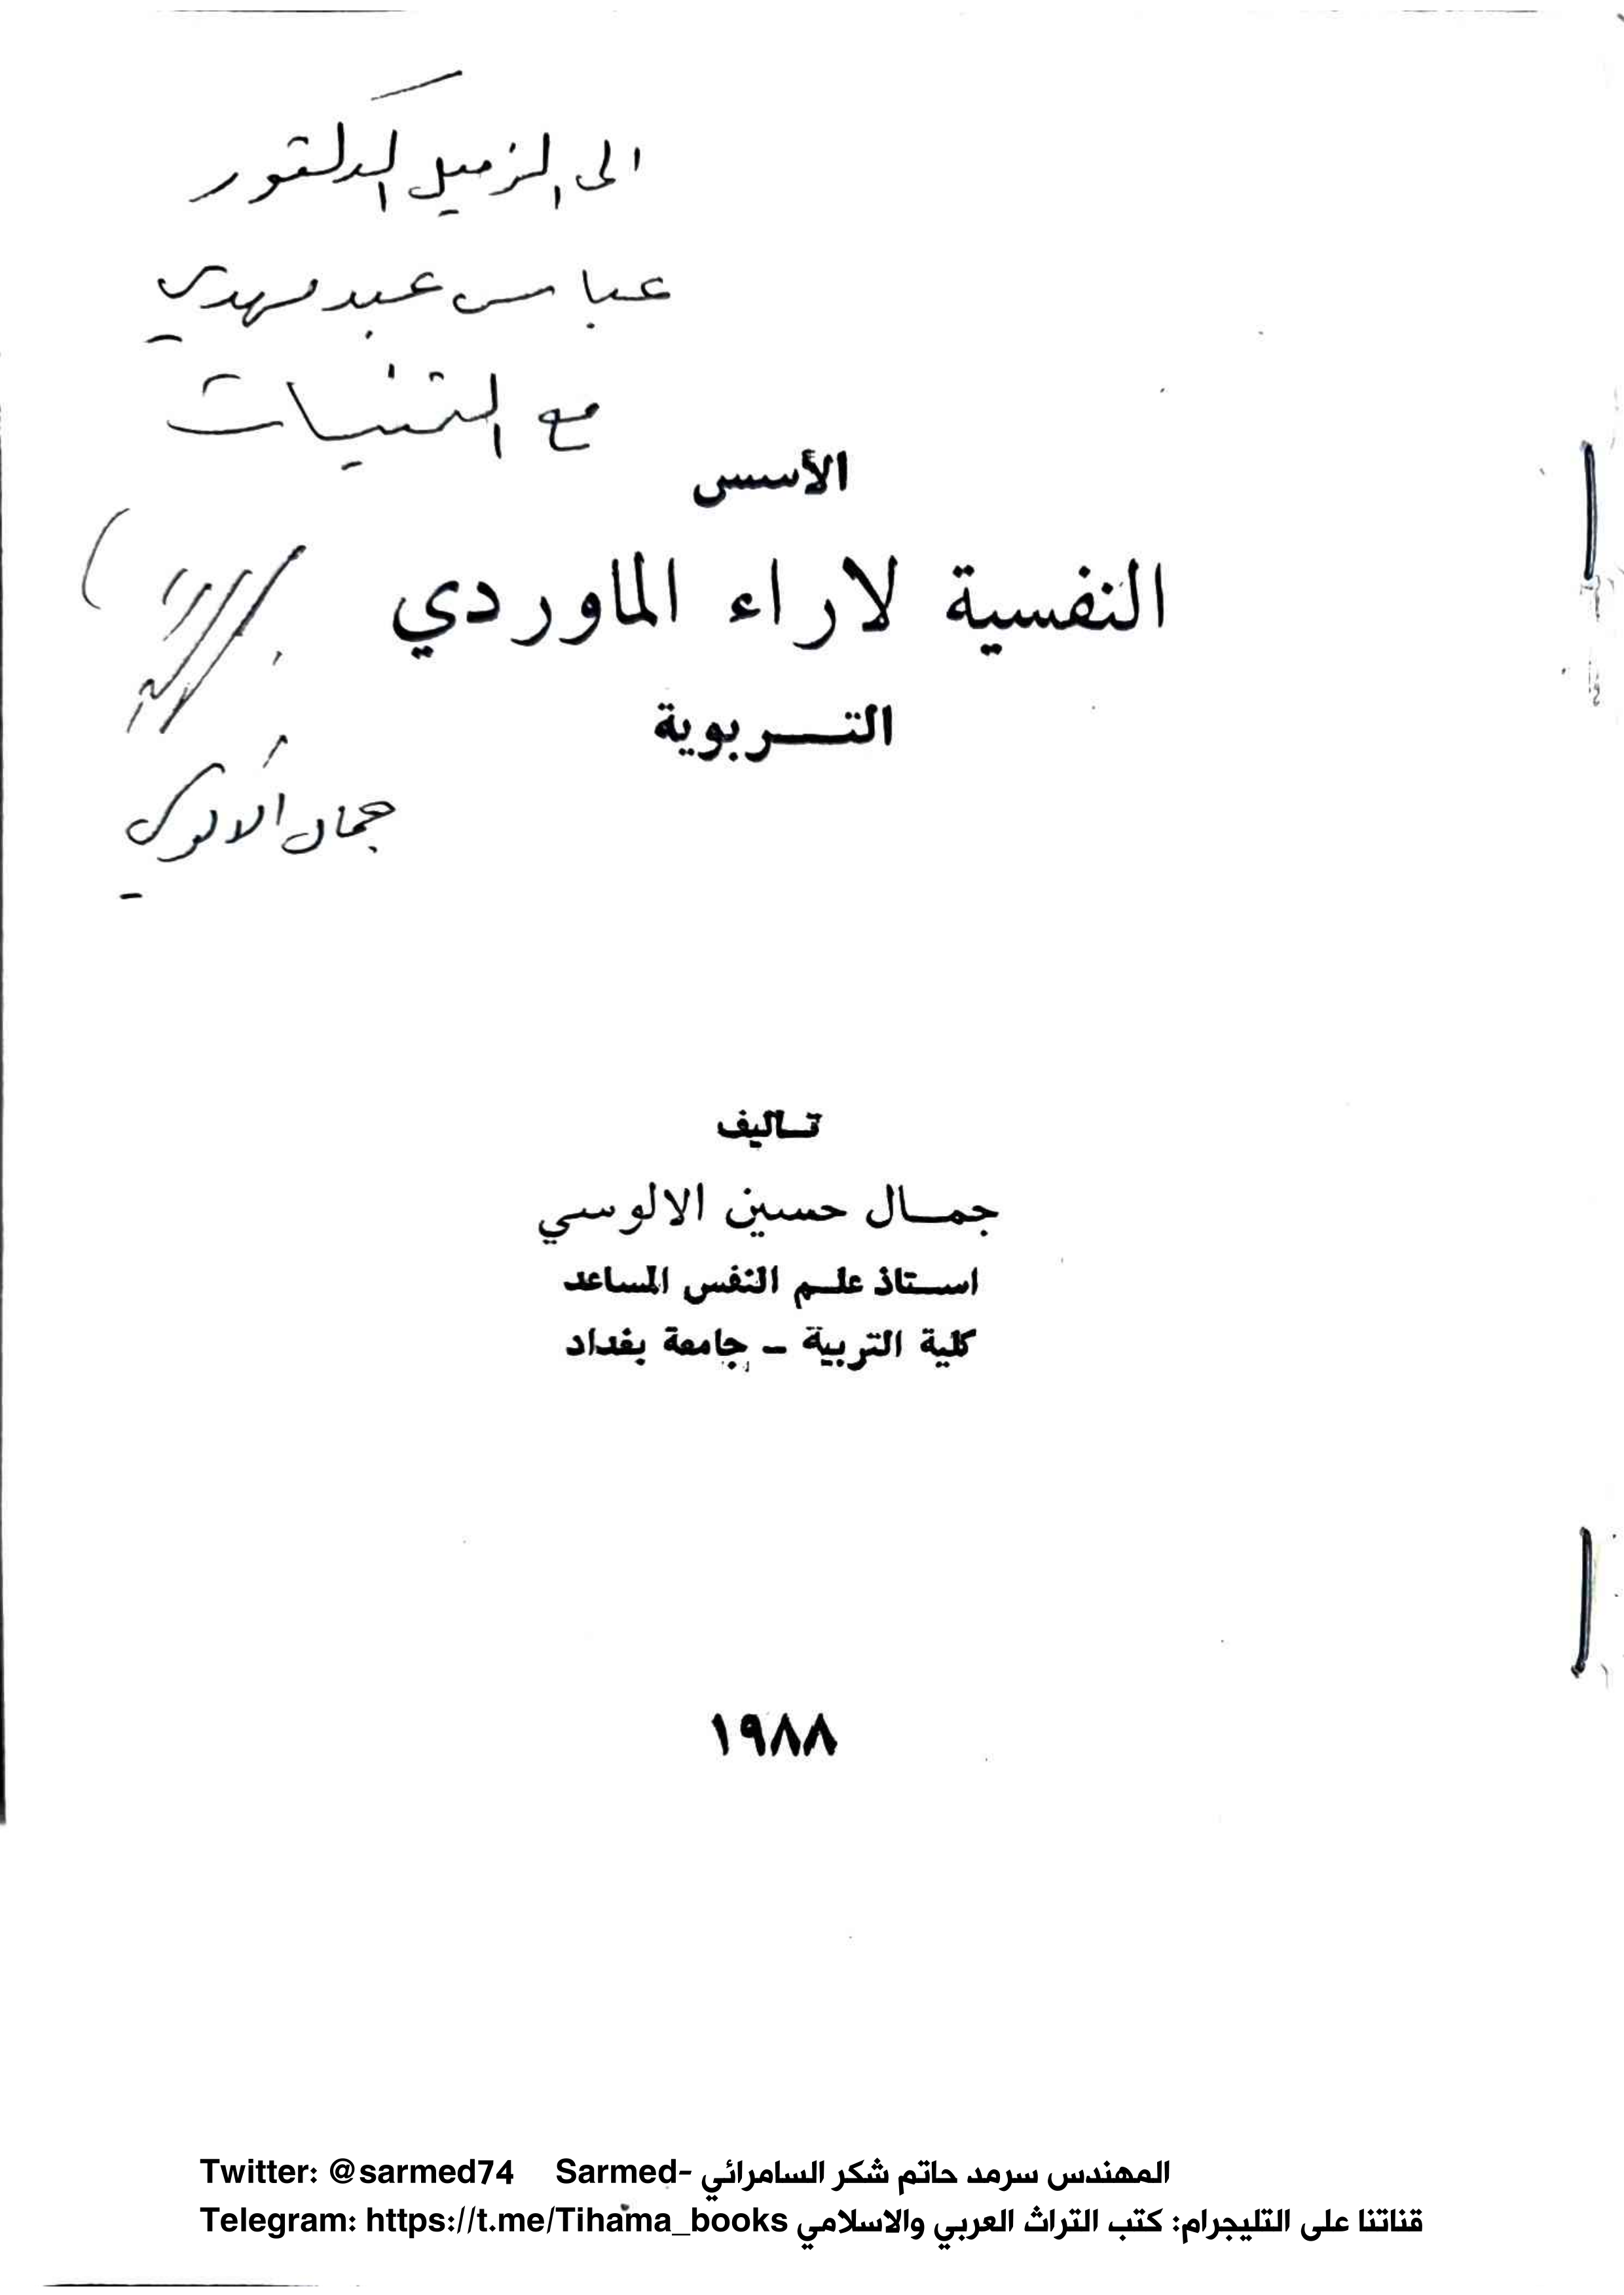 الى الزميل الدكتور
عباس عبد مهدي
مع التمنيات
الأسس
النفسية لاراء الماوردي
التربوية
جمال الالوسي
تاليف
جمال حسين الالوسي
استاذ علم النفس المساعد
كلية التربية - جامعة بغداد
١٩٨٨
Twitter: @sarmed74 Sarmed- المهندس سرمد حاتم شكر السامرائي
Telegram: https://t.me/Tihama_books قناتنا على التليجرام: كتب التراث العربي والاسلامي